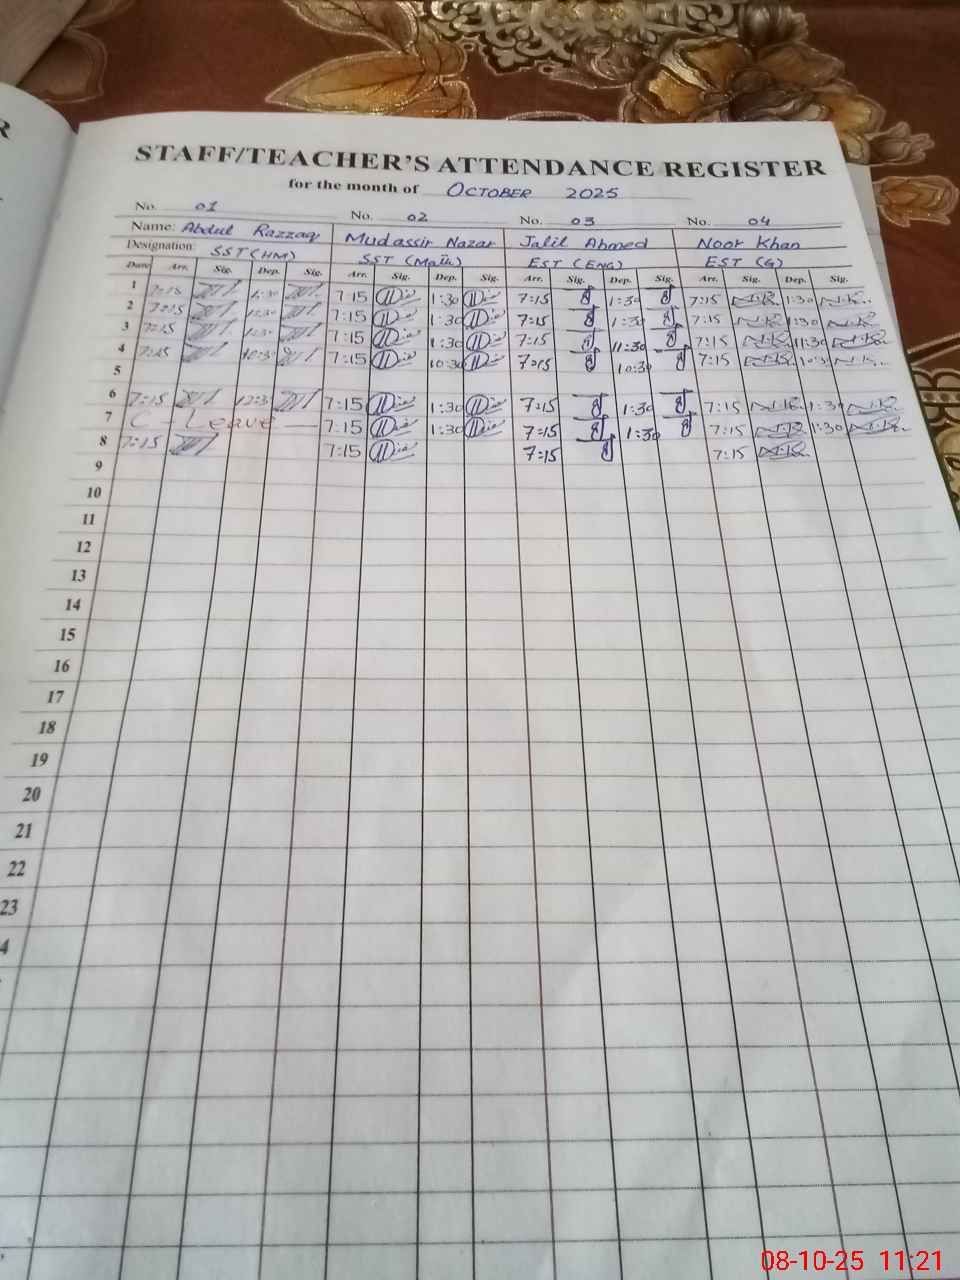 R
STAFF/TEACHER'S ATTENDANCE REGISTER
for the month of OCTOBER 2025
No. 01 No. 02 No. 03 No. 04
Name: Abdul Razzaq Mudassir Nazar Jalil Ahmed Noor Khan
Designation: SST (HM) SST (Math) EST (ENG) EST (G)
Date Arr. Sig. Dep. Sig. Arr. Sig. Dep. Sig. Arr. Sig. Dep. Sig. Arr. Sig. Dep. Sig.
1 7:15 1:30 7:15 1:30 7:15 1:30 7:15 1:30
2 7:15 7:15 1:30 7:15 1:30 7:15 1:30
3 7:15 7:15 1:30 7:15 11:30 7:15 11:30
4 7:15 7:15 10:30 7:15 10:30 7:15 10:3
5
6 7:15 7:15 1:30 7:15 1:30 7:15 1:30
7 C - Leave 7:15 1:30 7:15 1:30 7:15 1:30
8 7:15 7:15 7:15 7:15
9
10
11
12
13
14
15
16
17
18
19
20
21
22
23
4
08-10-25 11:21